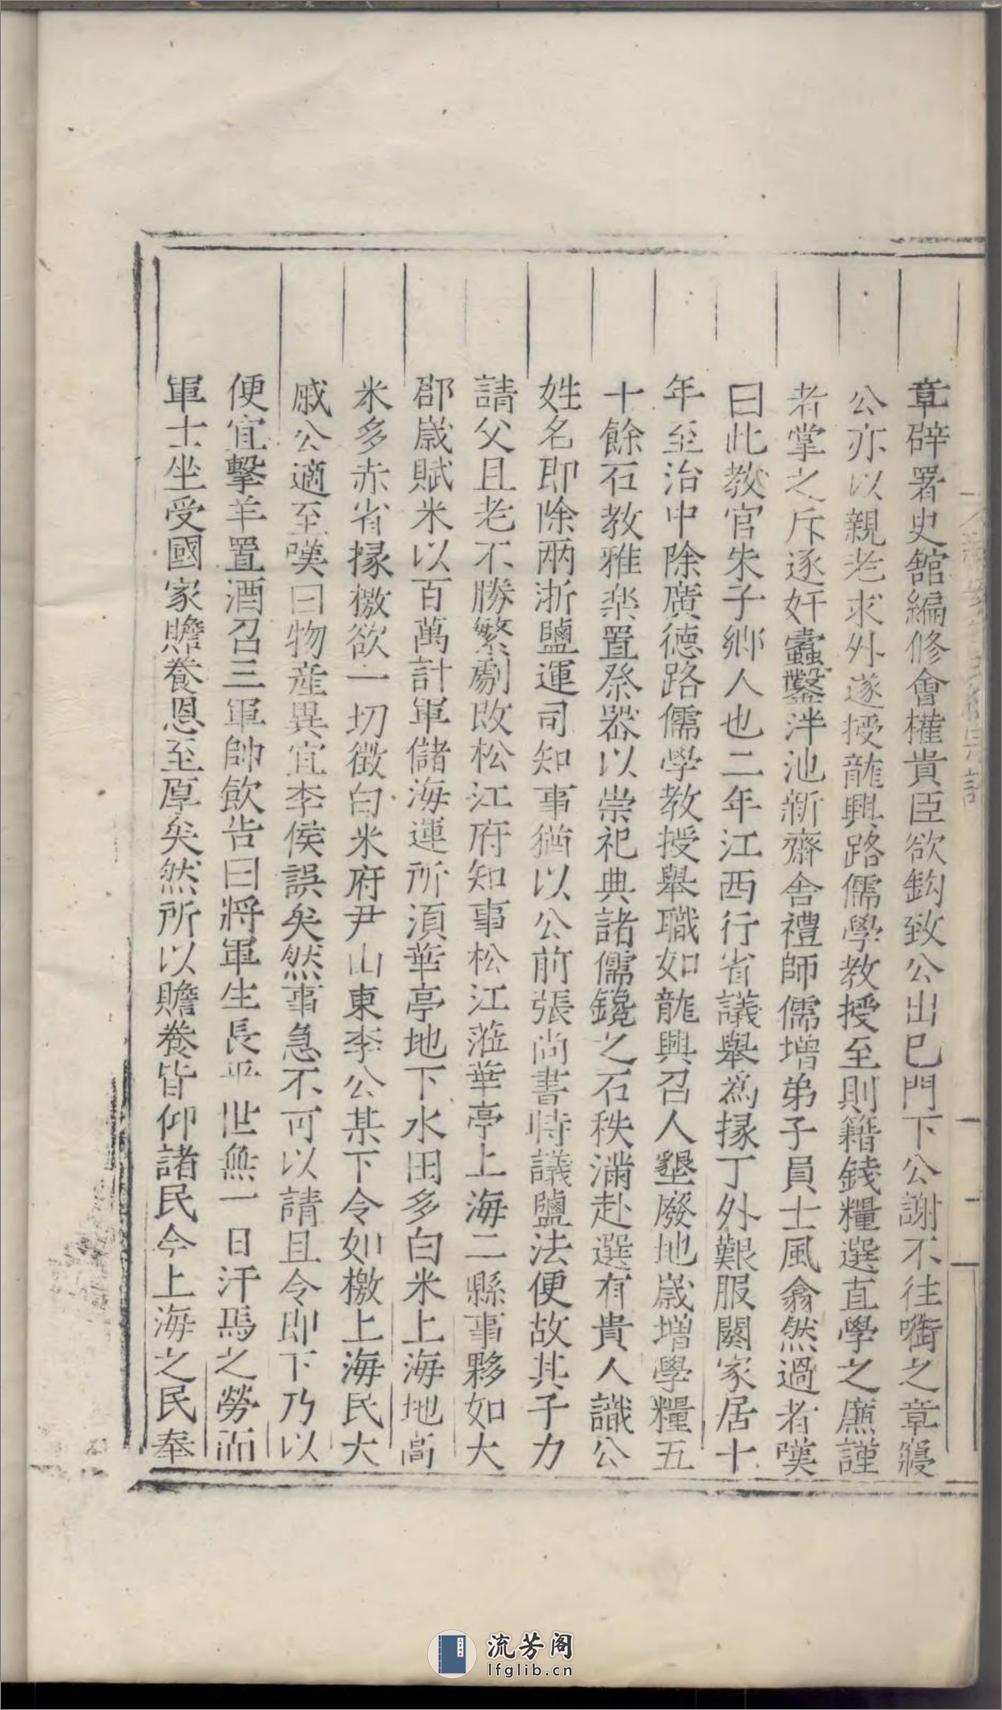 章辟署史館編修會權貴臣欲鈎致公出巳門下公謝不往啣之章寢
公亦以親老求外遂授龍興路儒學教授至則籍錢糧選直學之廉謹
者掌之斥逐奸蠹鑿泮池新齋舍禮師儒增弟子員士風翕然過者嘆
曰此教官朱子鄉人也二年江西行省議舉為掾丁外艱服闋家居十
年至治中除廣德路儒學教授舉職如龍興召人墾廢地歲增學糧五
十餘石教雅樂置祭器以崇祀典諸儒鑱之石秩滿赴選有貴人識公
姓名即除兩浙鹽運司知事猶以公前張尚書時議鹽法便故其子力
請父且老不勝繁劇改松江府知事松江蒞華亭上海二縣事夥如大
郡歲賦米以百萬計軍儲海運所湏華亭地下水田多白米上海地高
米多赤省掾檄欲一切徵白米府尹山東李公某下令如檄上海民大
戚公適至嘆曰物產異宜李侯誤矣然事急不可以請且令即下乃以
便宜擊羊置酒召三軍帥飲告曰將軍生長平世無一日汗馬之勞而
軍士坐受國家贍養恩至厚矣然所以贍養皆仰諸民今上海之民奉
流芳阁
lfglib.cn